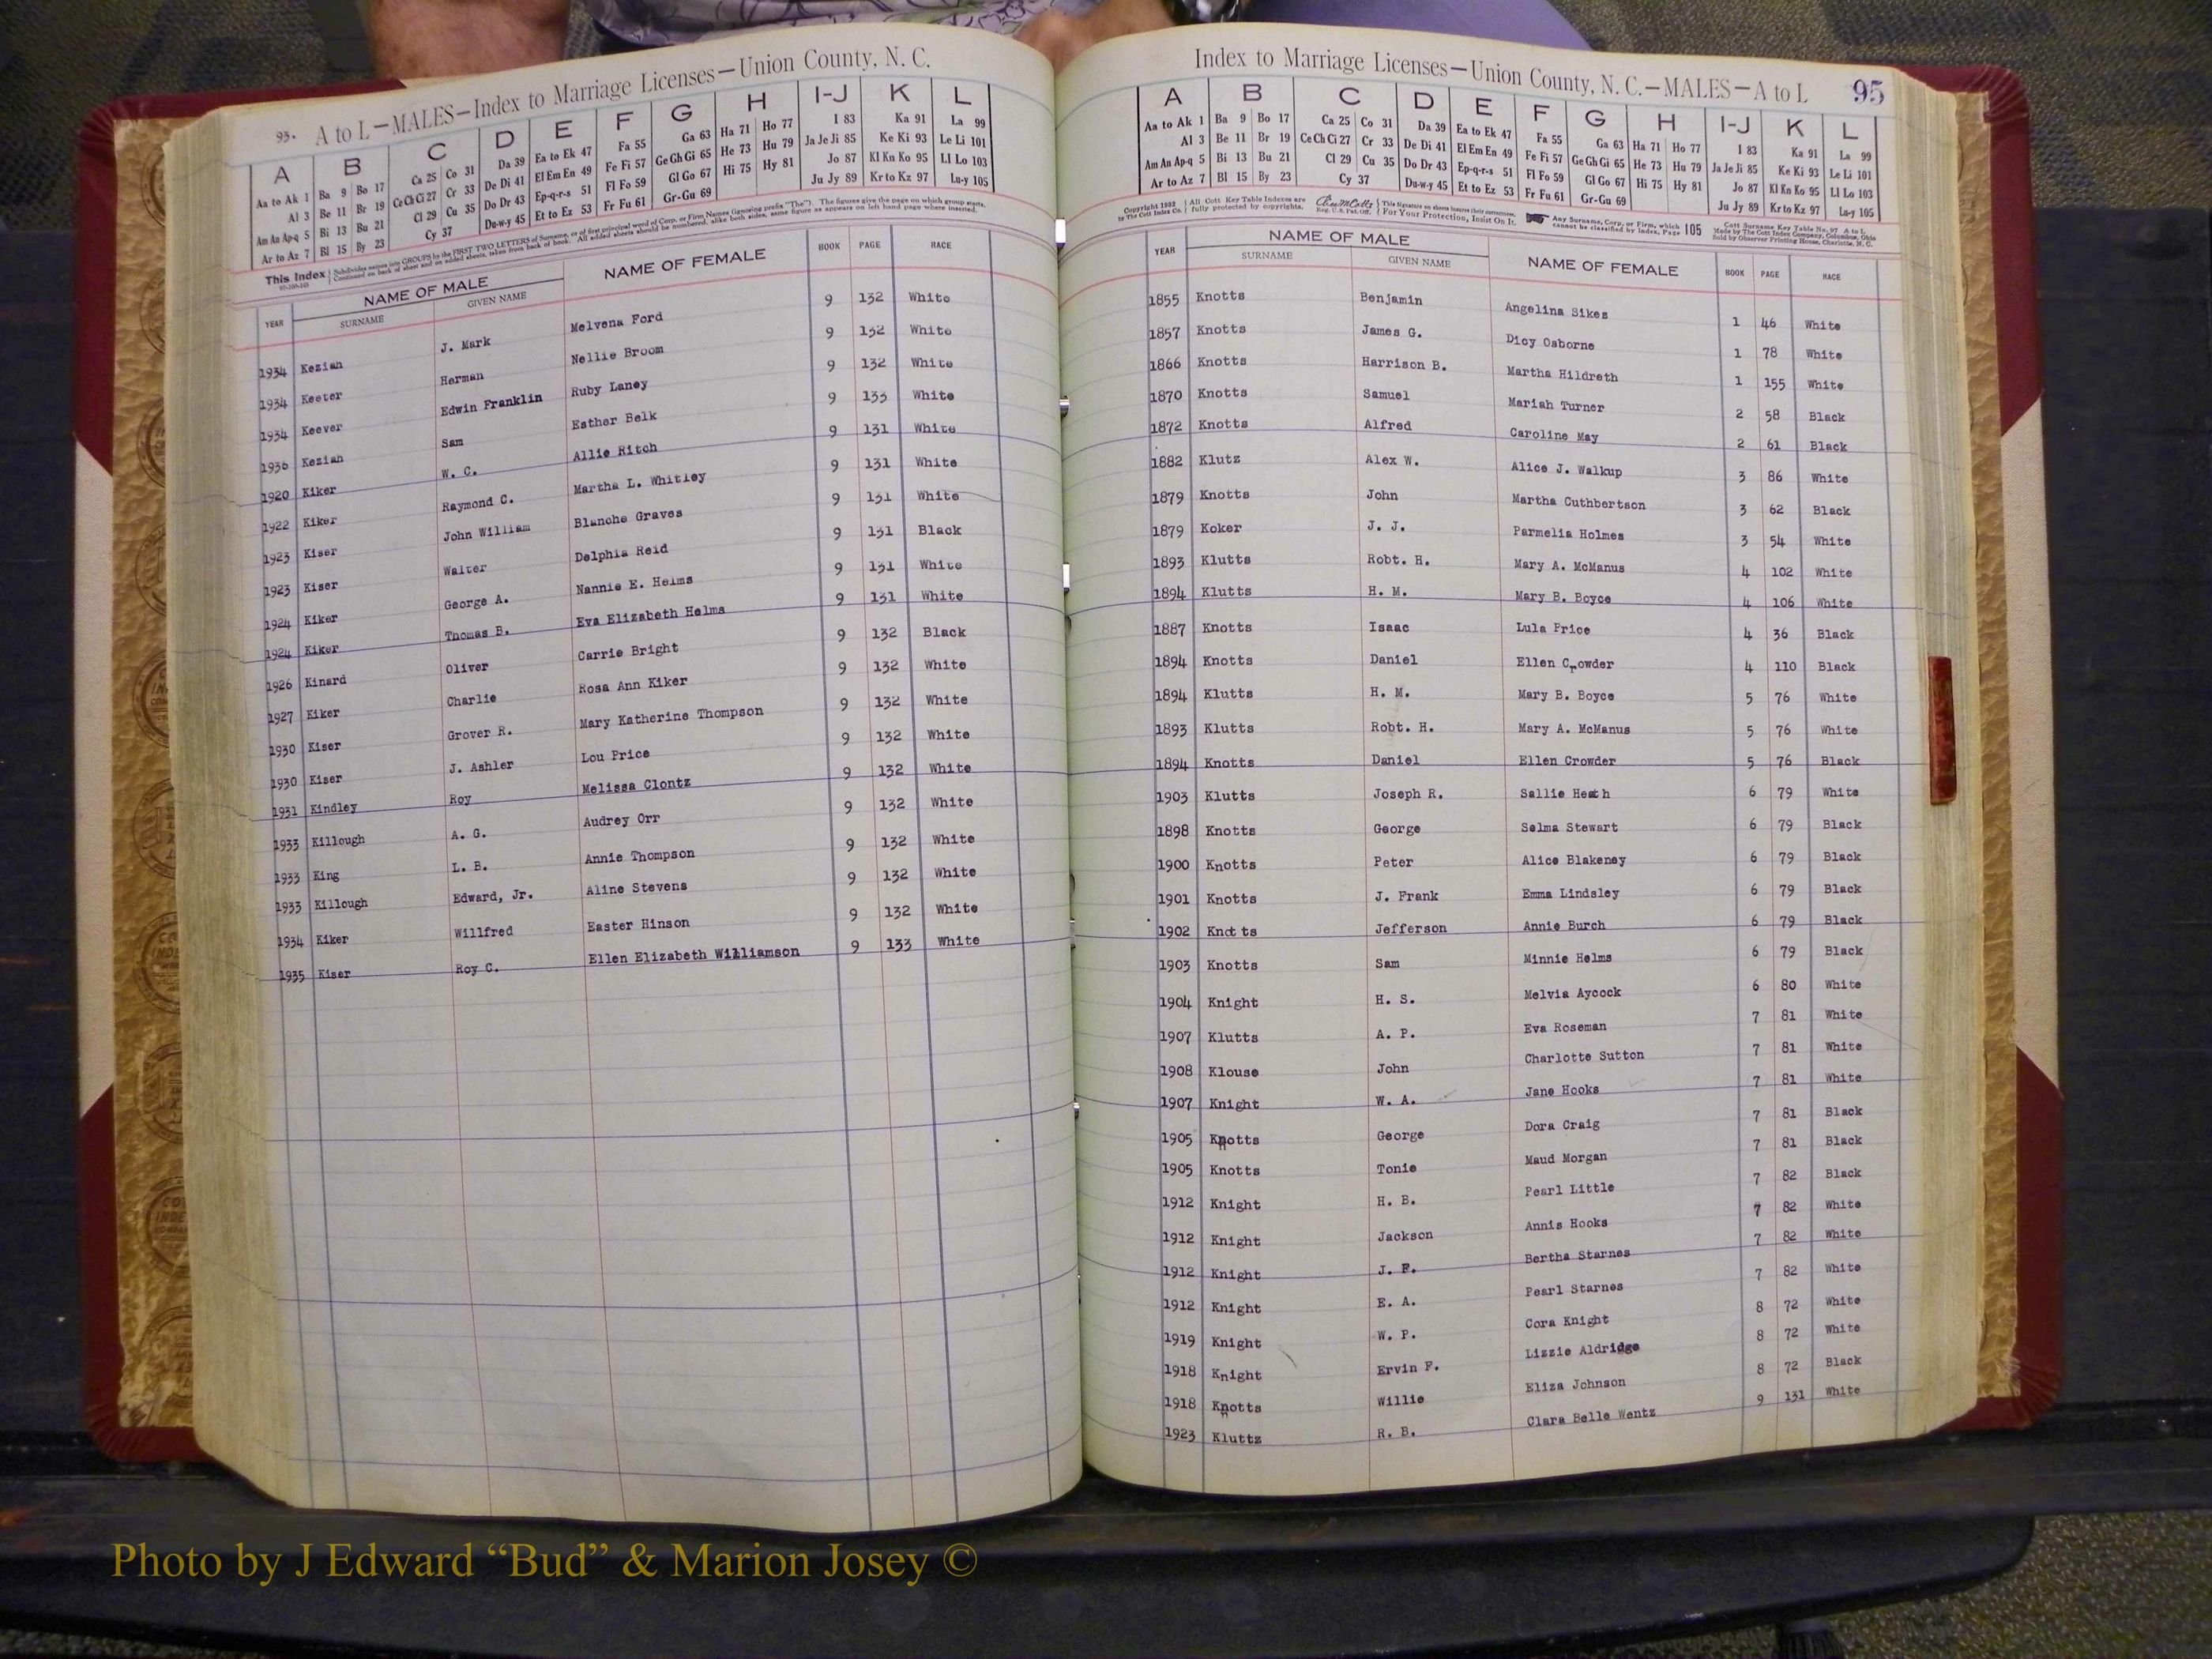 Index to Marriage Licenses—Union County, N. C.
93. A to L—MALES—Index to Marriage Licenses—Union County, N. C.
A B C D E F G H I-J K L
Aa to Ak 1 Ba 9 Bo 17 Ca 25 Co 31 Da 39 Ea to Ek 47 Fa 55 Ga 63 Ha 71 Ho 77 I 83 Ka 91 La 99
Al 3 Be 11 Br 19 Ce Ch Ci 27 Cr 33 De Di 41 El Em En 49 Fe Fi 57 Ge Gh Gi 65 He 73 Hu 79 Ja Je Ji 85 Ke Ki 93 Le Li 101
Am An Ap-q 5 Bi 13 Bu 21 Cl 29 Cu 35 Do Dr 43 Ep-q-r-s 51 Fl Fo 59 Gl Go 67 Hi 75 Hy 81 Jo 87 Kl Kn Ko 95 Ll Lo 103
Ar to Az 7 Bl 15 By 23 Cy 37 Du-w-y 45 Et to Ez 53 Fr Fu 61 Gr-Gu 69 Ju Jy 89 Kr to Kz 97 Lu-y 105
This Index Subdivides names into GROUPS by the FIRST TWO LETTERS of Surname, or of first principal word of Corp. or Firm Names (Ignoring prefix "The"). The figures give the page on which group starts.
Continued on back of sheet and on added sheets, taken from back of book. All added sheets should be numbered, alike both sides, same figure as appears on left hand page where inserted.
YEAR NAME OF MALE NAME OF FEMALE BOOK PAGE RACE
SURNAME GIVEN NAME
1934 Keziah J. Mark Melvena Ford 9 132 White
1934 Keeter Herman Nellie Broom 9 132 White
1934 Keever Edwin Franklin Ruby Laney 9 132 White
1936 Keziah Sam Esther Belk 9 133 White
1920 Kiker W. C. Allie Ritch 9 131 White
1922 Kiker Raymond C. Martha L. Whitley 9 131 White
1923 Kiser John William Blanche Graves 9 131 White
1923 Kiser Walter Delphia Reid 9 131 Black
1924 Kiker George A. Nannie E. Helms 9 131 White
1924 Kiker Thomas B. Eva Elizabeth Helms 9 131 White
1926 Kinard Oliver Carrie Bright 9 132 Black
1927 Kiker Charlie Rosa Ann Kiker 9 132 White
1930 Kiser Grover R. Mary Katherine Thompson 9 132 White
1930 Kiser J. Ashler Lou Price 9 132 White
1931 Kindley Roy Melissa Clontz 9 132 White
1933 Killough A. G. Audrey Orr 9 132 White
1933 King L. B. Annie Thompson 9 132 White
1933 Killough Edward, Jr. Aline Stevens 9 132 White
1934 Kiker Willfred Easter Hinson 9 132 White
1935 Kiser Roy C. Ellen Elizabeth Williamson 9 133 White
Index to Marriage Licenses—Union County, N. C.—MALES—A to L 95
A B C D E F G H I-J K L
Aa to Ak 1 Ba 9 Bo 17 Ca 25 Co 31 Da 39 Ea to Ek 47 Fa 55 Ga 63 Ha 71 Ho 77 I 83 Ka 91 La 99
Al 3 Be 11 Br 19 Ce Ch Ci 27 Cr 33 De Di 41 El Em En 49 Fe Fi 57 Ge Gh Gi 65 He 73 Hu 79 Ja Je Ji 85 Ke Ki 93 Le Li 101
Am An Ap-q 5 Bi 13 Bu 21 Cl 29 Cu 35 Do Dr 43 Ep-q-r-s 51 Fl Fo 59 Gl Go 67 Hi 75 Hy 81 Jo 87 Kl Kn Ko 95 Ll Lo 103
Ar to Az 7 Bl 15 By 23 Cy 37 Du-w-y 45 Et to Ez 53 Fr Fu 61 Gr-Gu 69 Ju Jy 89 Kr to Kz 97 Lu-y 105
Copyright 1922 by The Cott Index Co. All Cott Key Table Indexes are fully protected by copyrights. Reg. U. S. Pat. Off. This signature on sheets insures their correctness. For Your Protection, Insist On It. Any Surname, Corp. or Firm, which cannot be classified by index, Page 105 Cott Surname Key Table No. 97 A to L Made by The Cott Index Company, Columbus, Ohio Sold by Observer Printing House, Charlotte, N. C.
YEAR NAME OF MALE NAME OF FEMALE BOOK PAGE RACE
SURNAME GIVEN NAME
1855 Knotts Benjamin Angelina Sikes 1 46 White
1857 Knotts James G. Dicy Osborne 1 78 White
1866 Knotts Harrison B. Martha Hildreth 1 155 White
1870 Knotts Samuel Mariah Turner 2 58 Black
1872 Knotts Alfred Caroline May 2 61 Black
1882 Klutz Alex W. Alice J. Walkup 3 86 White
1879 Knotts John Martha Cuthbertson 3 62 Black
1879 Koker J. J. Parmelia Holmes 3 54 White
1893 Klutts Robt. H. Mary A. McManus 4 102 White
1894 Klutts H. M. Mary B. Boyce 4 106 White
1887 Knotts Isaac Lula Price 4 36 Black
1894 Knotts Daniel Ellen Crowder 4 110 Black
1894 Klutts H. M. Mary B. Boyce 5 76 White
1893 Klutts Robt. H. Mary A. McManus 5 76 White
1894 Knotts Daniel Ellen Crowder 5 76 Black
1903 Klutts Joseph R. Sallie Heath 6 79 White
1898 Knotts George Selma Stewart 6 79 Black
1900 Knotts Peter Alice Blakeney 6 79 Black
1901 Knotts J. Frank Emma Lindsley 6 79 Black
1902 Knotts Jefferson Annie Burch 6 79 Black
1903 Knotts Sam Minnie Helms 6 79 Black
1904 Knight H. S. Melvia Aycock 6 80 White
1907 Klutts A. P. Eva Roseman 7 81 White
1908 Klouse John Charlotte Sutton 7 81 White
1907 Knight W. A. Jane Hooks 7 81 White
1905 Knotts George Dora Craig 7 81 Black
1905 Knotts Tonie Maud Morgan 7 81 Black
1912 Knight H. B. Pearl Little 7 82 Black
1912 Knight Jackson Annis Hooks 7 82 White
1912 Knight J. F. Bertha Starnes 7 82 White
1912 Knight E. A. Pearl Starnes 7 82 White
1919 Knight W. P. Cora Knight 8 72 White
1918 Knight Ervin F. Lizzie Aldridge 8 72 White
1918 Knotts Willie Eliza Johnson 8 72 Black
1923 Kluttz R. B. Clara Belle Wentz 9 131 White
Photo by J Edward “Bud” & Marion Josey ©